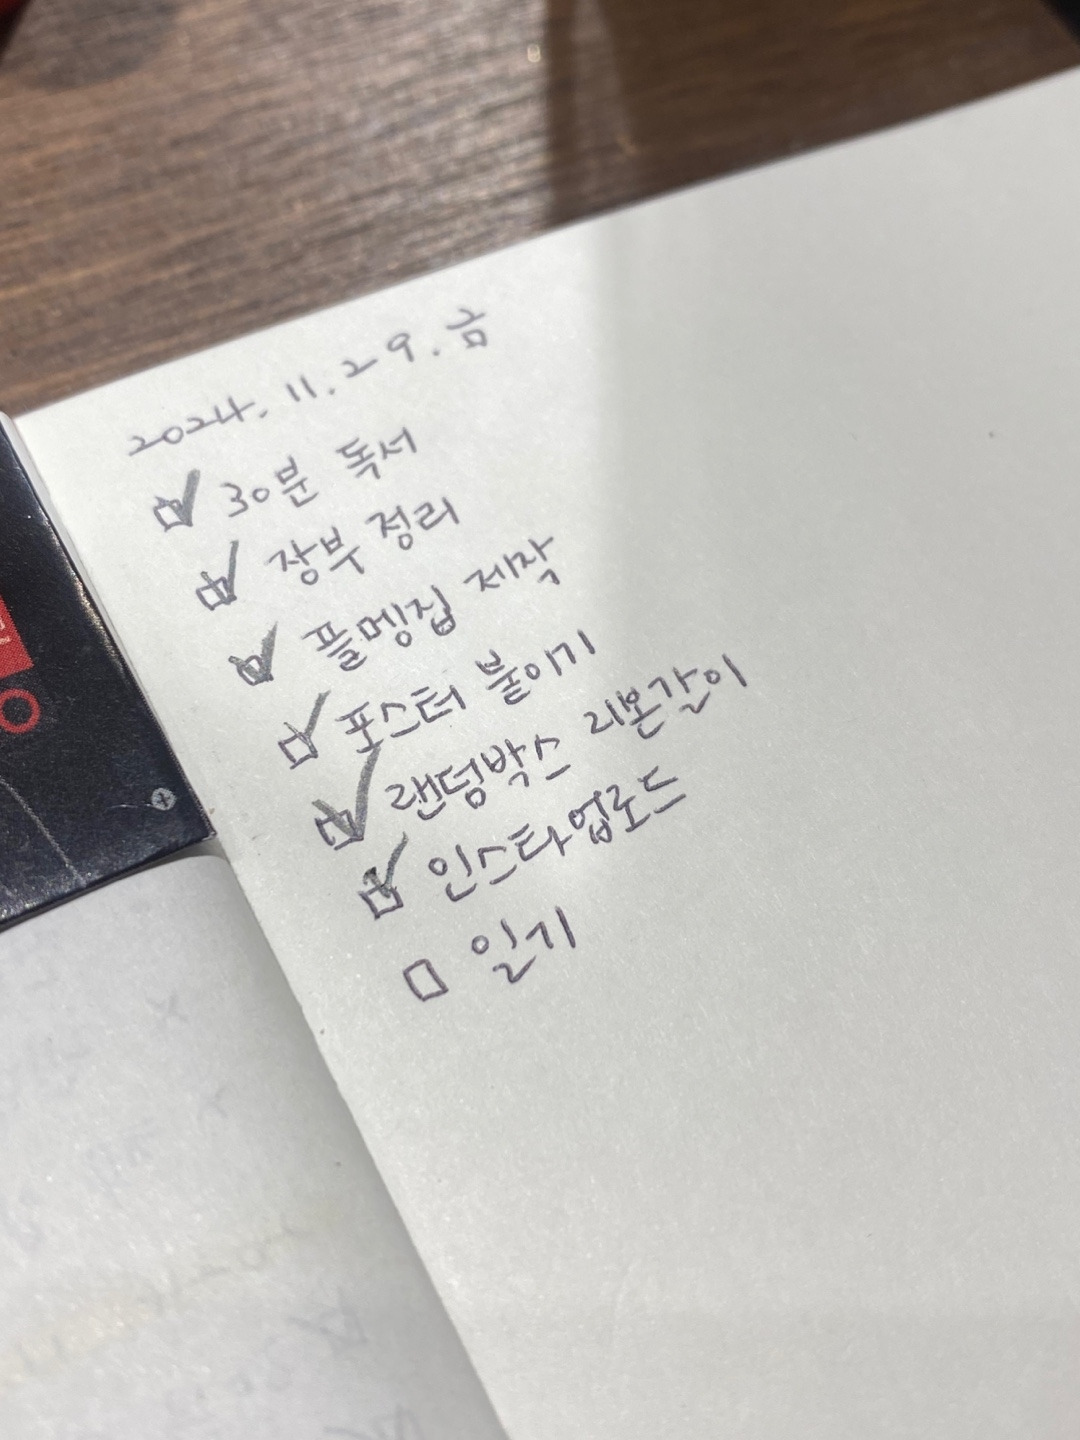 2024.11.29.금
30분 독서
장부 정리
플멩집 제작
포스터 붙이기
랜덤박스 리본갈이
인스타업로드
일기